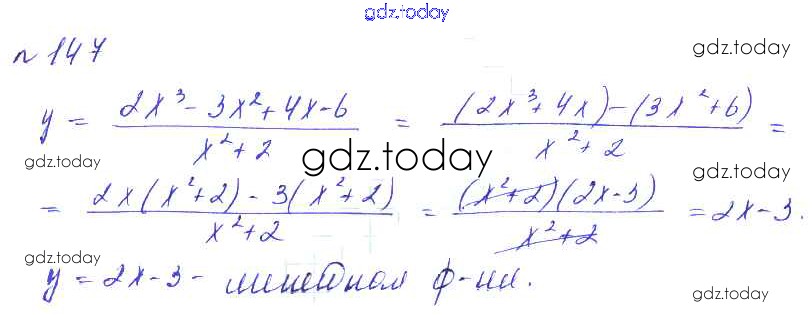 gdz.today
n 147
gdz.today
y = (2x³ - 3x² + 4x - 6)/(x² + 2) = ((2x³ + 4x) - (3x² + 6))/(x² + 2) =
gdz.today
gdz.today
gdz.today
= (2x(x² + 2) - 3(x² + 2))/(x² + 2) = ((x² + 2)(2x - 3))/(x² + 2) = 2x - 3.
gdz.today
gdz.today
y = 2x - 3 - линейной ф-ии.
gdz.today